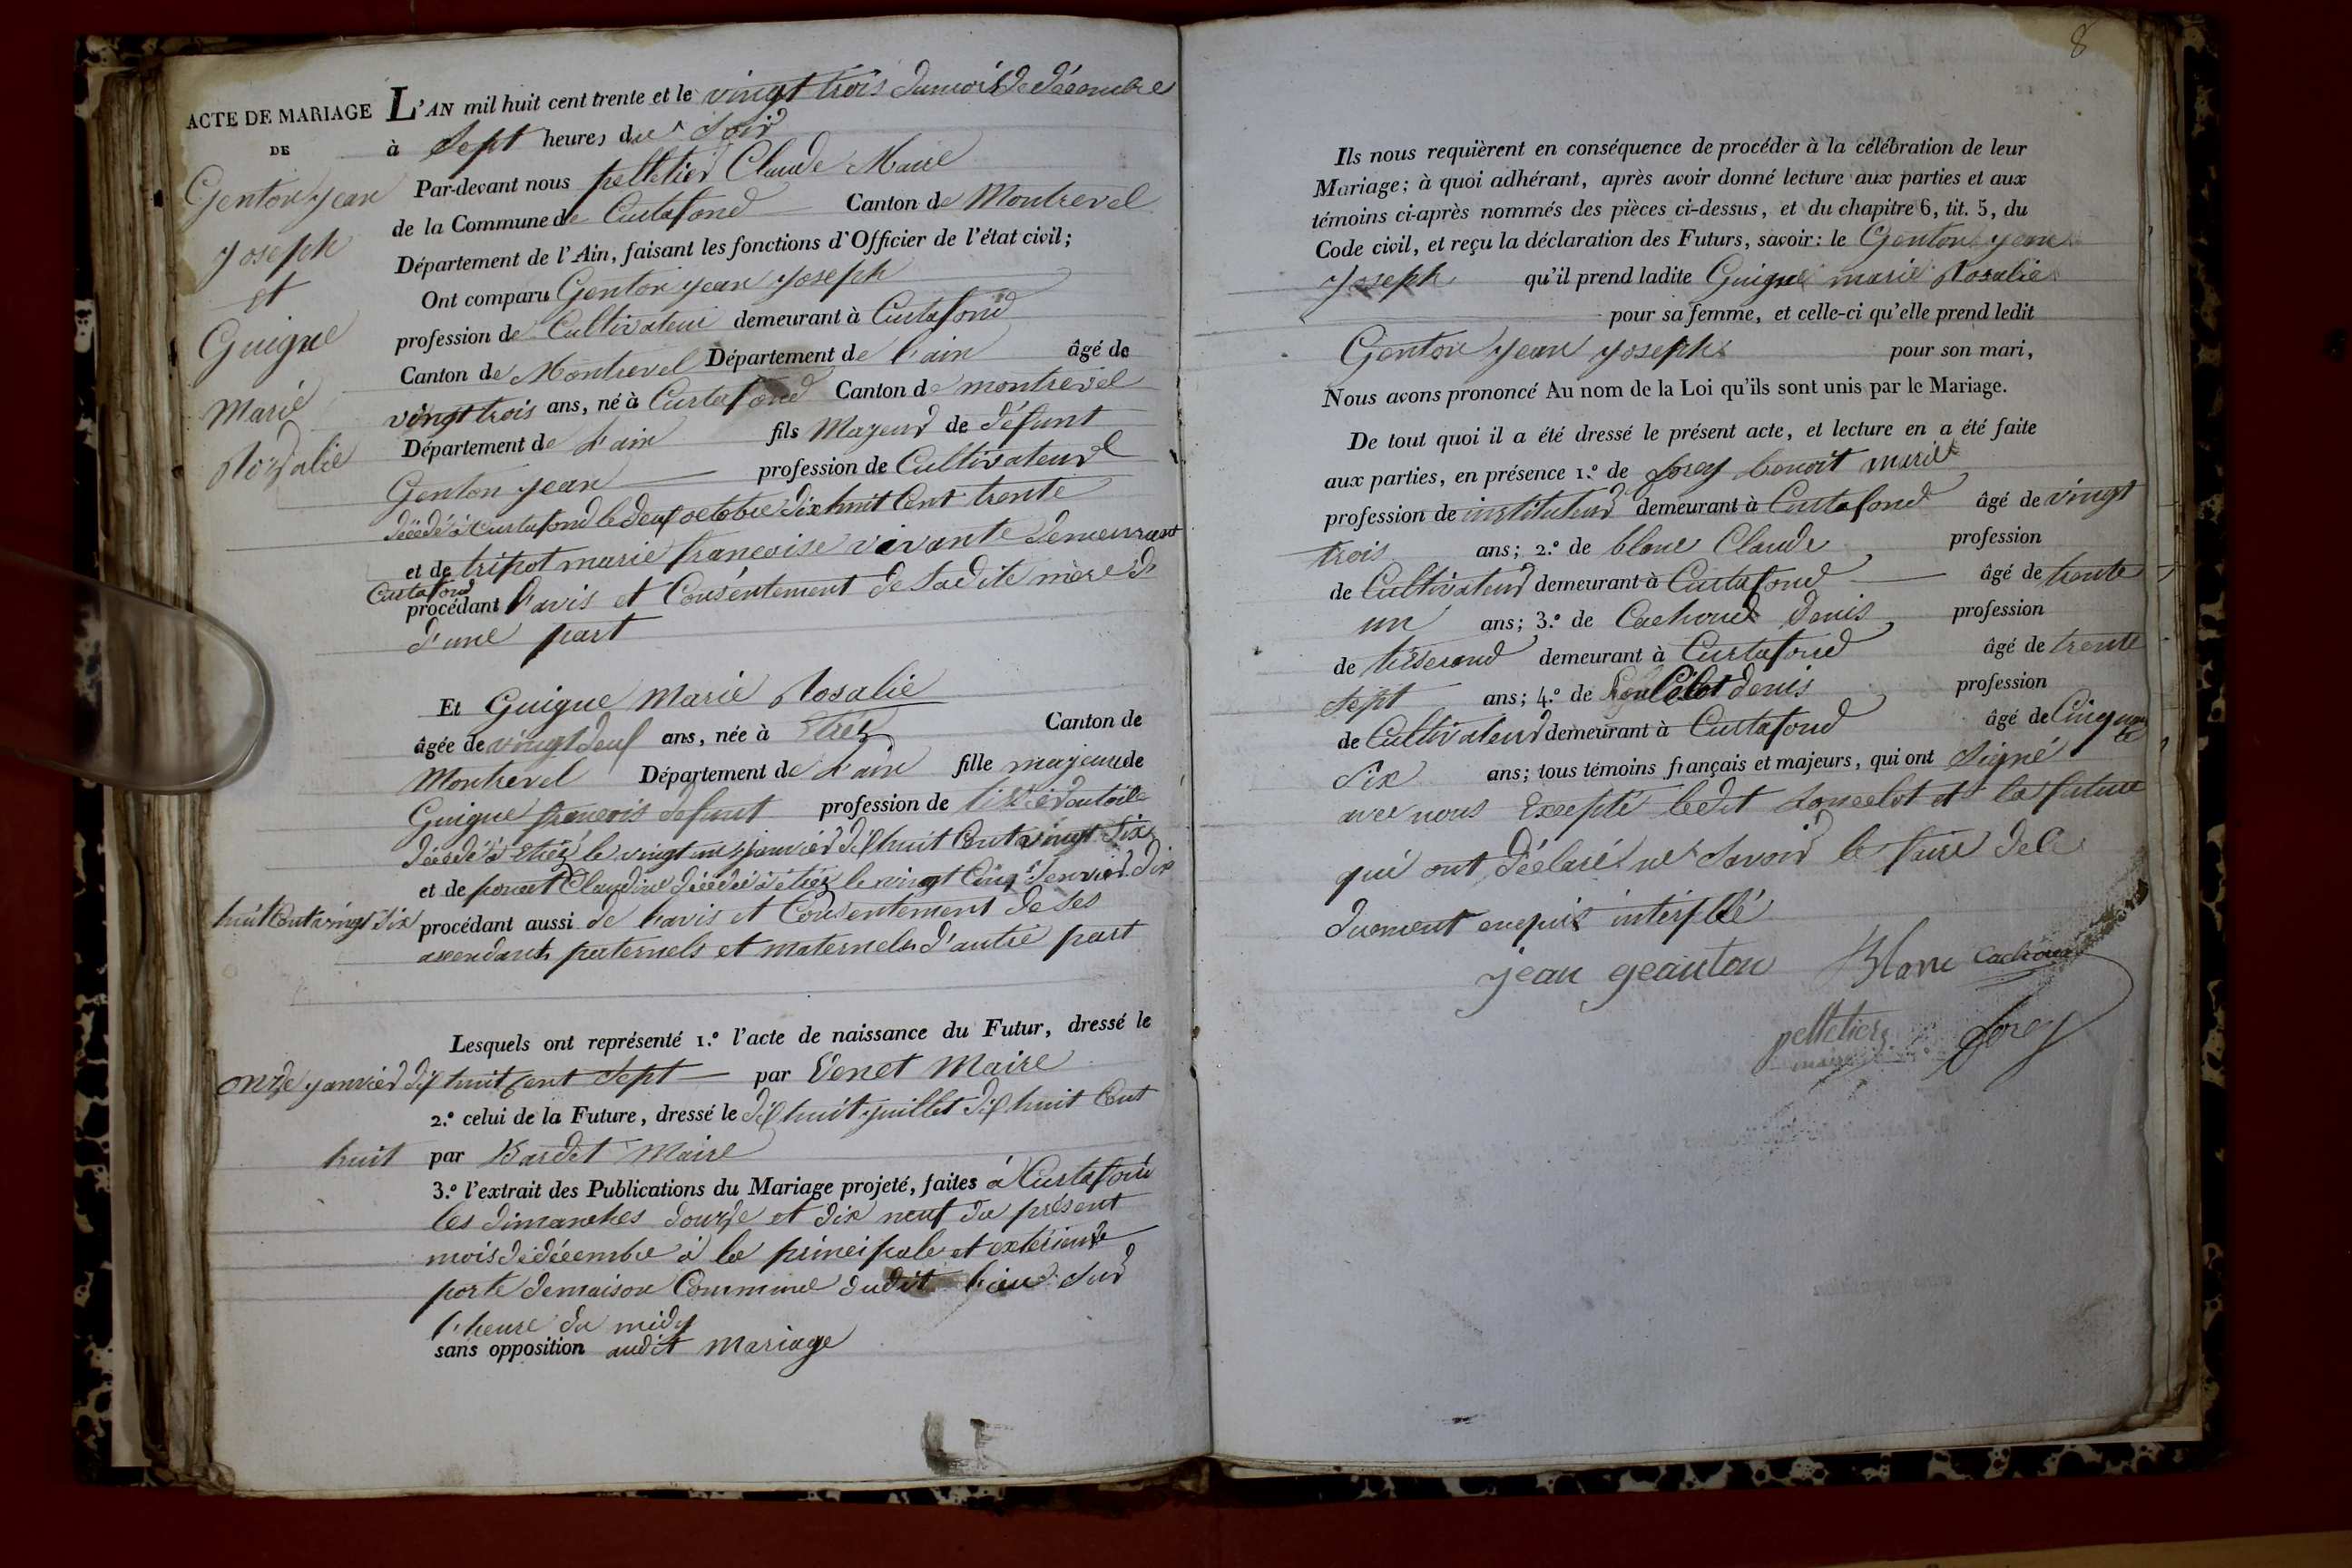 ACTE DE MARIAGE
DE
Genton Jean
Joseph
et
Guigue
Marie
Rosalie
L'AN mil huit cent trente et le vingt trois du mois de décembre
à Sept heures du Soir
Par-devant nous pelletier Claude Maire
de la Commune de Curtafond Canton de Montrevel
Département de l'Ain, faisant les fonctions d'Officier de l'état civil;
Ont comparu Genton jean joseph
profession de Cultivateur demeurant à Curtafond
Canton de Montrevel Département de l'ain âgé de
vingt trois ans, né à Curtafond Canton de montrevel
Département de L'ain fils Majeur de défunt
Genton jean profession de Cultivateur
décédé à Curtafond le deux octobre dix huit Cent trente
et de tripot marie françoise vivante demeurant
Curtafond
procédant l'avis et Consentement de Sadite mère d
d'une part
Et Guigue Marie Rosalie
âgée de vingt deux ans, née à Etrez Canton de
Montrevel Département de L'ain fille majeure de
Guigue françois défunt profession de
décédé à Etrez le vingt un janvier dix huit Cent vingt Six
et de poncet Claudine décédée à étrez le vingt Cinq Janvier dix
huit Cent vingt Six procédant aussi de l'avis et Consentement de Ses
ascendants paternels et maternels d'autre part
Lesquels ont représenté 1.° l'acte de naissance du Futur, dressé le
onze janvier dix huit Cent Sept par Venet Maire
2.° celui de la Future, dressé le dix huit juillet dix huit Cent
huit par Bardet Maire
3.° l'extrait des Publications du Mariage projeté, faites à Curtafond
les dimanches douze et dix neuf du présent
mois de décembre à la principale et extérieure
porte de maison Commune dudit lieu Sur
l'heure du midy
sans opposition audit Mariage
8
Ils nous requièrent en conséquence de procéder à la célébration de leur
Mariage; à quoi adhérant, après avoir donné lecture aux parties et aux
témoins ci-après nommés des pièces ci-dessus, et du chapitre 6, tit. 5, du
Code civil, et reçu la déclaration des Futurs, savoir: le Genton jean
Joseph qu'il prend ladite Guigue marie Rosalie
pour sa femme, et celle-ci qu'elle prend ledit
Genton jean joseph pour son mari,
Nous avons prononcé Au nom de la Loi qu'ils sont unis par le Mariage.
De tout quoi il a été dressé le présent acte, et lecture en a été faite
aux parties, en présence 1.° de Sorey benoit marie
profession de instituteur demeurant à Curtafond âgé de vingt
trois ans; 2.° de blanc Claude profession
de Cultivateur demeurant à Curtafond âgé de trente
un ans; 3.° de Cachoud Denis profession
de tisserand demeurant à Curtafond âgé de trente
Sept ans; 4.° de denis profession
de Cultivateur demeurant à Curtafond âgé de Cinquante
Six ans; tous témoins français et majeurs, qui ont Signé
avec nous Excepté ledit Loncelot et la future
qui ont déclaré ne Savoir le faire de ce
duement enquis interpellé
jean geanton Blanc Cachoud
pelletier Sorey
maire